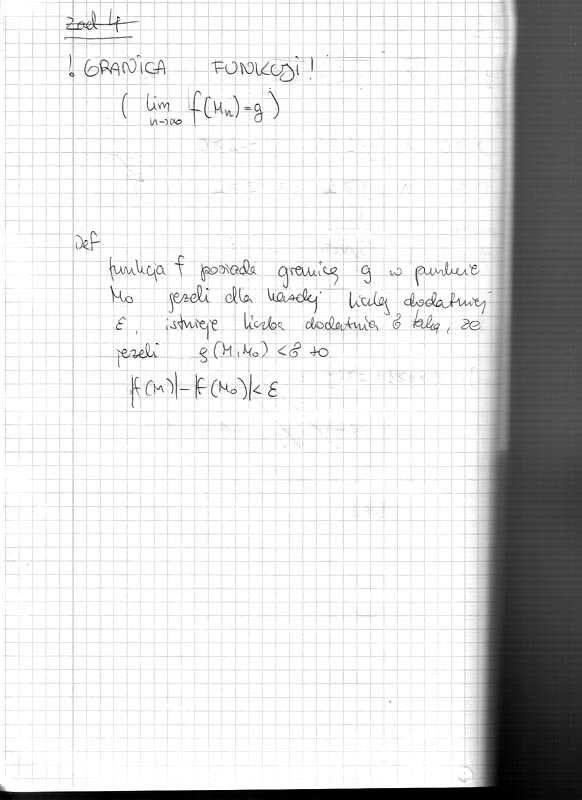 zad 4
! GRANICA FUNKCJI !
( lim f(Mn) = g )
n→∞
Def
funkcja f posiada granicę g w punkcie
M0 jeżeli dla każdej liczby dodatniej
ε, istnieje liczba dodatnia δ taka, że
jeżeli ρ(M, M0) < δ to
|f(M)| - |f(M0)| < ε